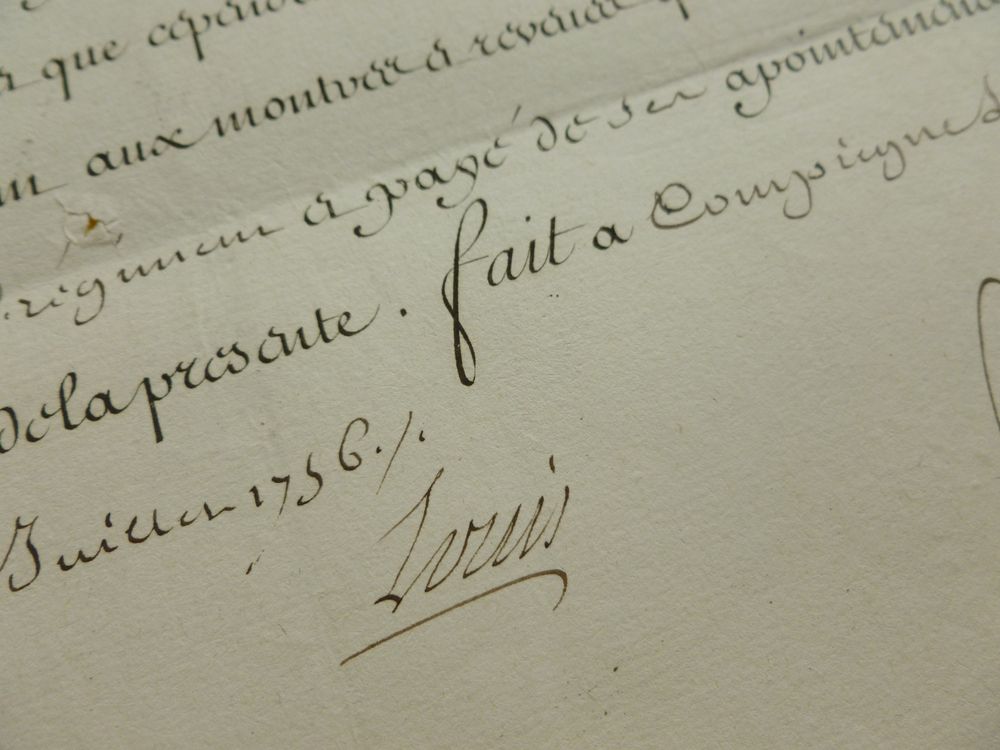 que cépend
aux montrés & revéués
régiment & payé de ses apointemens
de la presente. fait a Compiegne
Juillet 1756./.
Louis